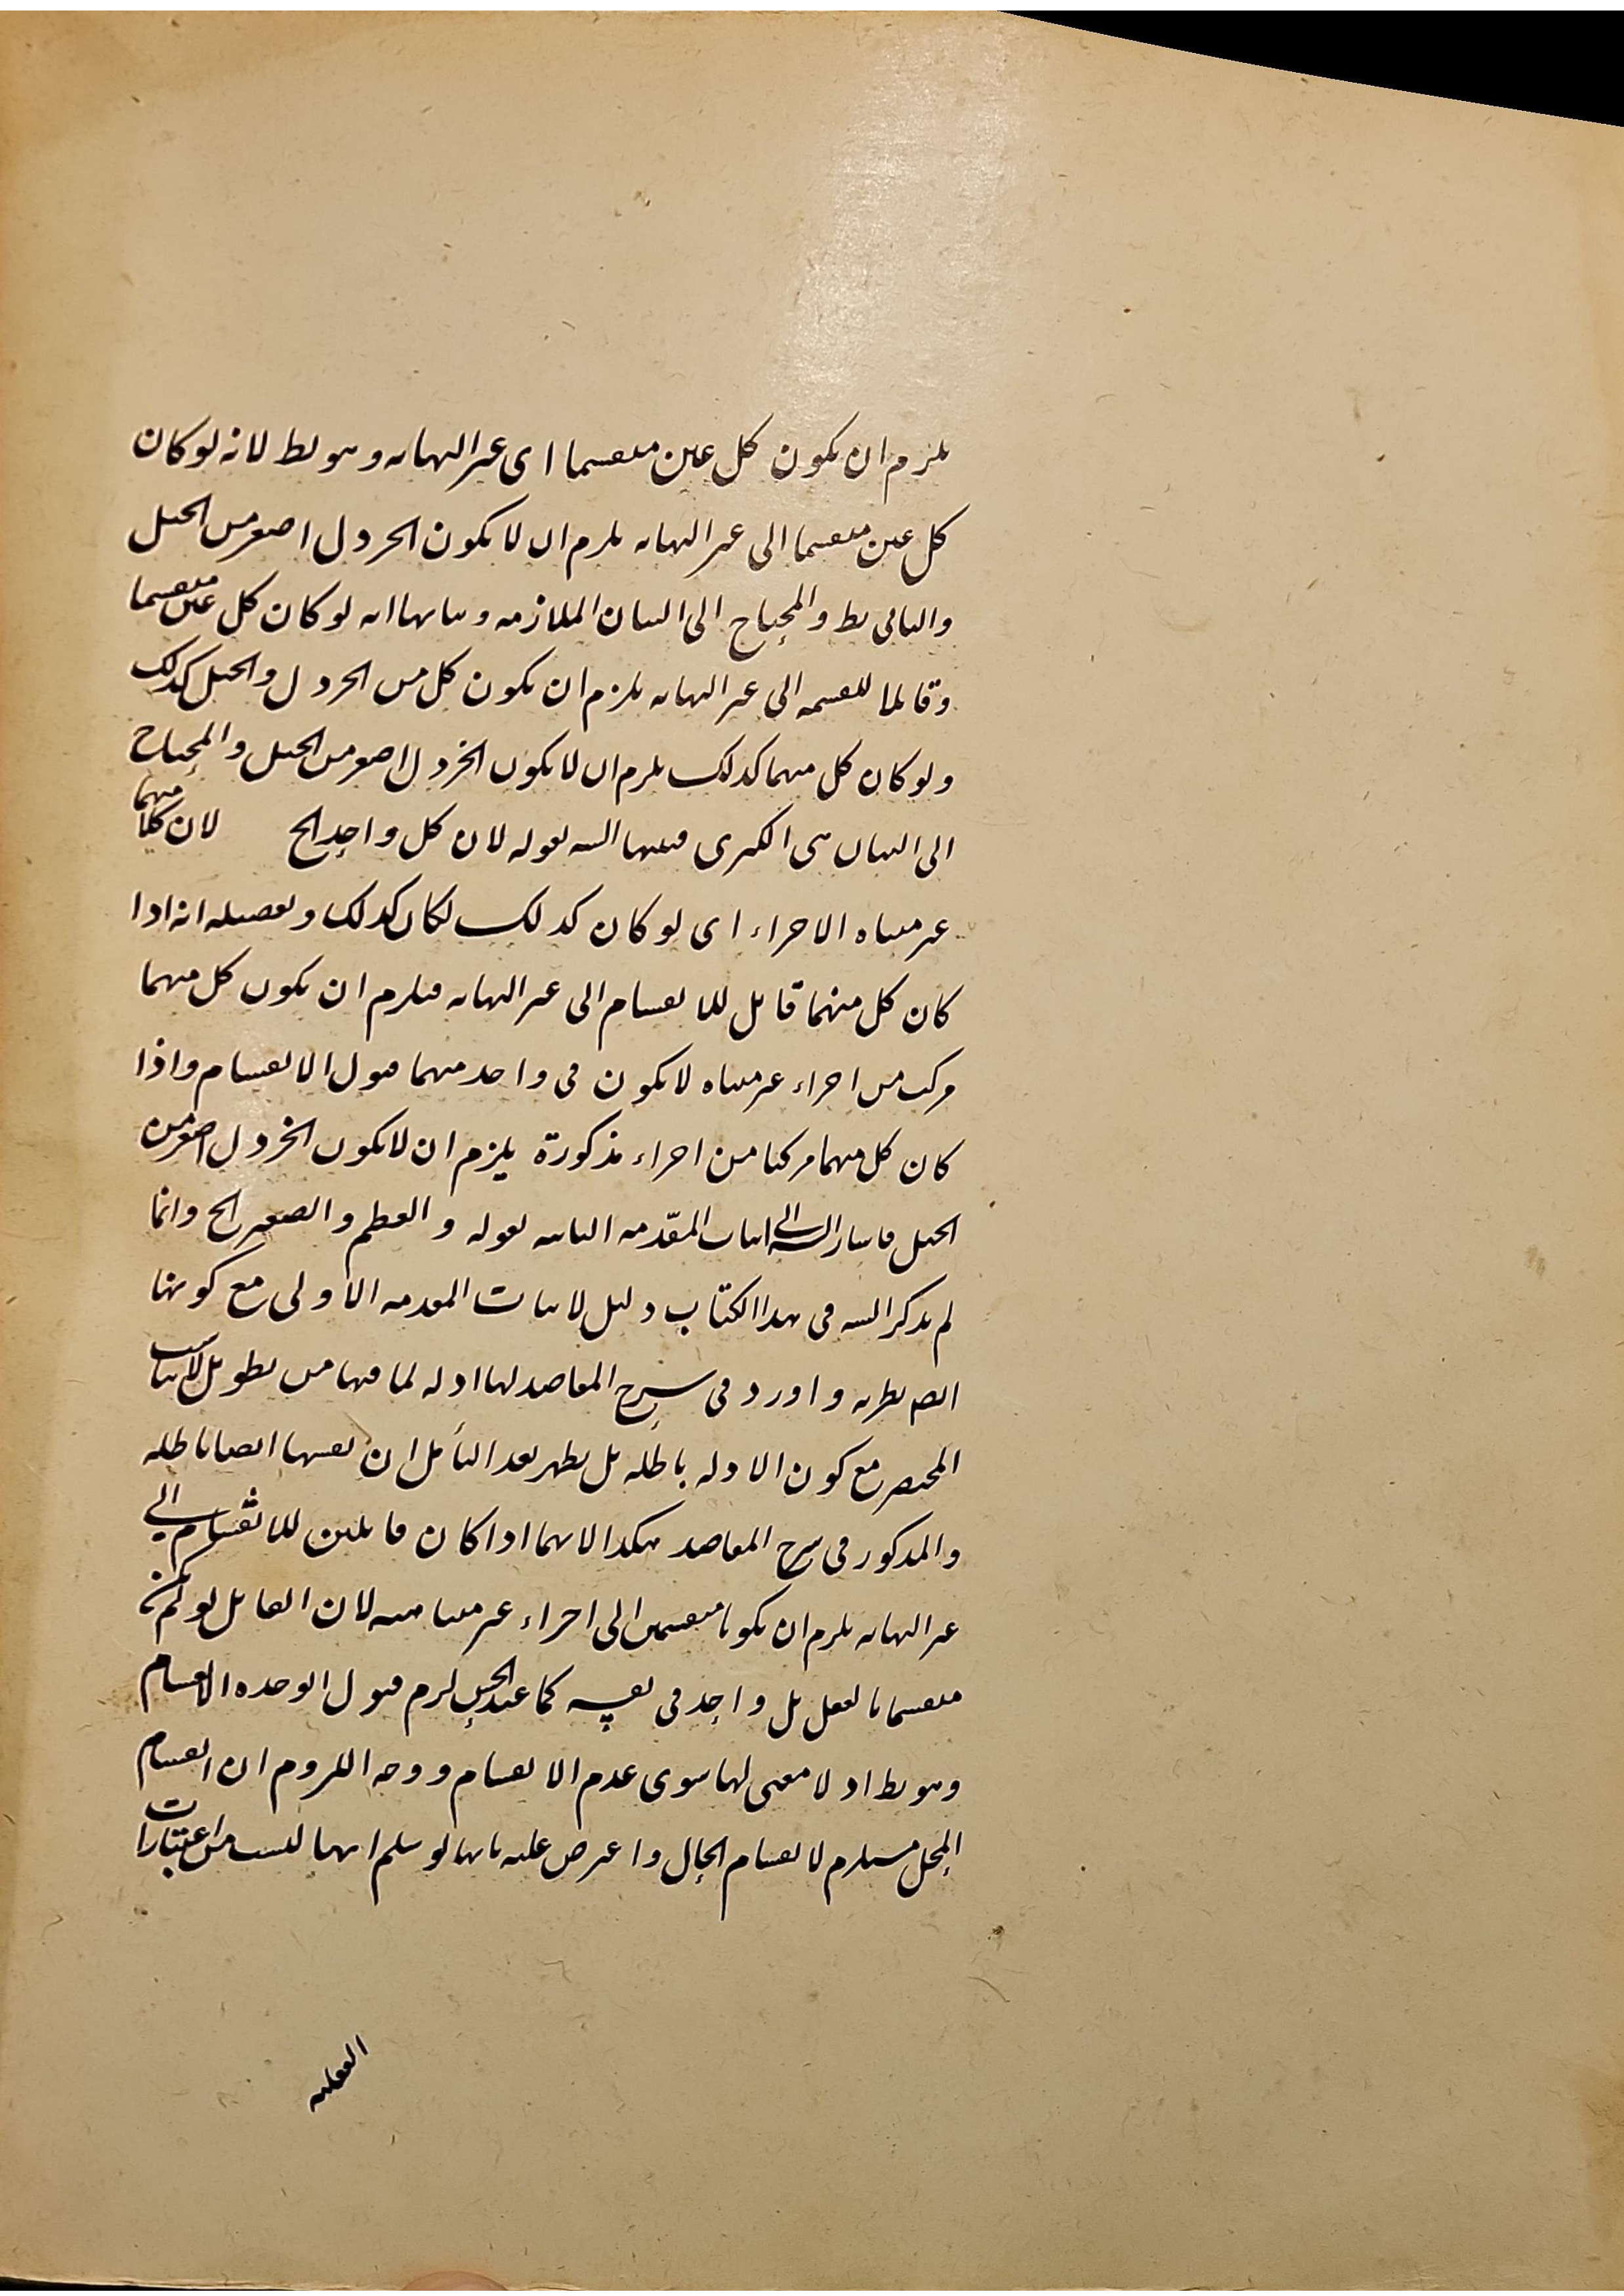 يلزم ان يكون كل عين منقسما اى غير النهاية وهو بط لانه لو كان
كل عين منقسما الى غير النهاية يلزم ان لا يكون الخردل اصغر من الجبل
والتالى بط والمحتاج الى البيان الملازمة وبيانها انه لو كان كل عين منقسما
وقابلا للقسمة الى غير النهاية يلزم ان يكون كل من الخردل والجبل كذلك
ولو كان كل منهما كذلك يلزم ان لا يكون الخردل اصغر من الجبل والمحتاج
الى البيان هى الكبرى فبينها الشه بقوله لان كل واحد الخ لان كلا منهما
غير متناه الاجزاء اى لو كان كذلك لكان كذلك وتفصيله انه اذا
كان كل منهما قابل للانقسام الى غير النهاية فيلزم ان يكون كل منهما
مركب من اجزاء غير متناه لا يكون فى واحد منهما قبول الانقسام واذا
كان كل منهما مركبا من اجزاء مذكورة يلزم ان لا يكون الخردل اصغر من
الجبل فاشار الشه الى اثبات المقدمة الثانية بقوله والعظم والصغر الخ وانما
لم يذكر الشه فى هذا الكتاب دليل لاثبات المقدمة الاولى مع كونها
ايضا نظرية واورد فى شرح المقاصد لها ادلة لما فيها من تطويل لا يناسب
المختصر مع كون الادلة باطلة بل يظهر بعد التأمل ان نفسها ايضا باطلة
والمذكور فى شرح المقاصد هكذا لانهما اذا كان قابلين للانقسام الى
غير النهاية يلزم ان يكونا منقسمين الى اجزاء غير متناهية لان القابل لو لم يكن
منقسما بالفعل بل واحد فى نفسه كما عند الحكيم لزم قبول الوحدة الانقسام
وهو بط اذ لا معنى لها سوى عدم الانقسام ووجه اللزوم ان انقسام
المحل مستلزم لانقسام الحال واعترض عليه بانها لو سلم انها ليست من اعتبارات
العقلية